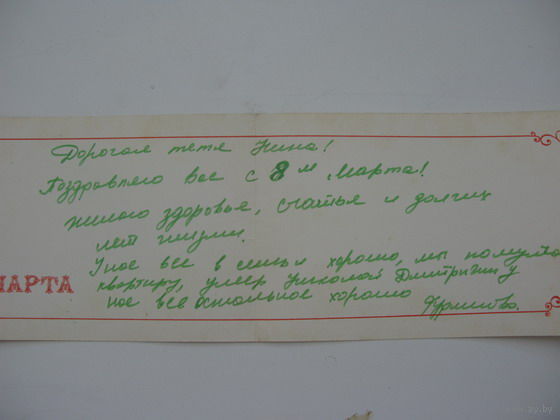 Дорогая тетя Нина!
Поздравляю Вас с 8 м Марта!
желаю здоровья, счастья и долгих
лет жизни.
У нас все в семьи хорошо, мы получили
квартиру, умер Николай Дмитривич у
нас все остальное хорошо
МАРТА
www.ay.by